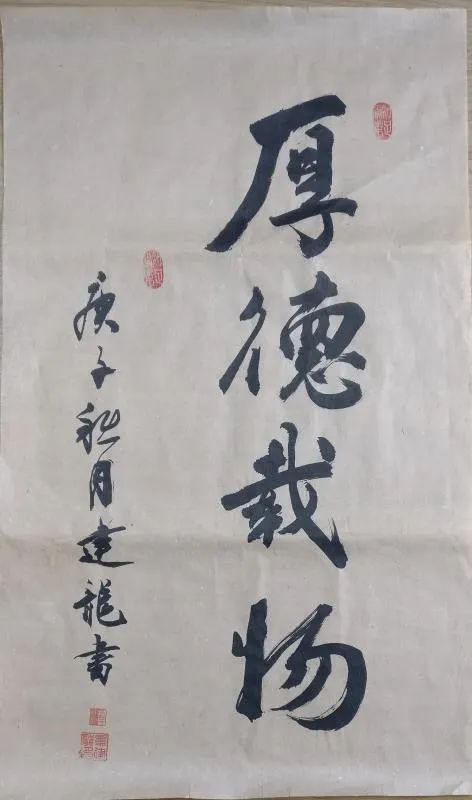 厚德载物
庚子秋月建龍書